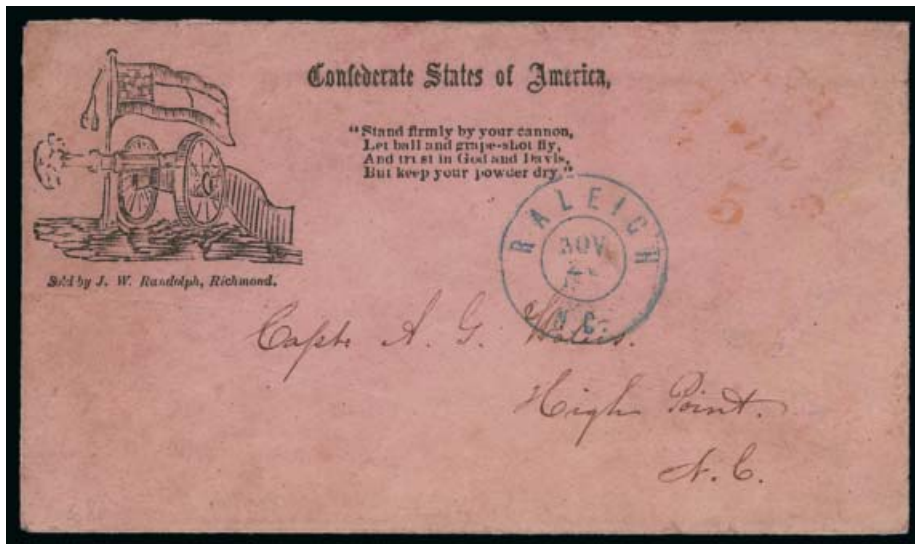 Confederate States of America,
"Stand firmly by your cannon,
Let ball and grape-shot fly,
And trust in God and Davis,
But keep your powder dry."
Sold by J. W. Randolph, Richmond.
RALEIGH
NOV
N.C.
5
Capt. A. G.
High Point.
N. C.